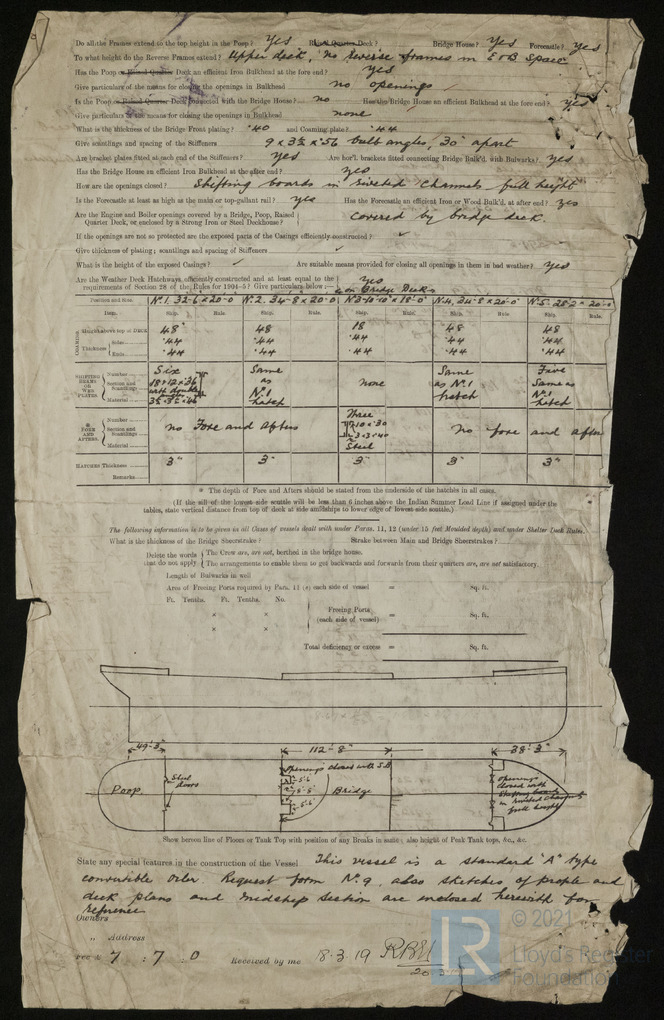 Do all the Frames extend to the top height in the Poop? Yes Raised Quarter Deck? Bridge House? Yes Forecastle? Yes
To what height do the Reverse Frames extend? Upper deck, no reverse frames in E & B space
Has the Poop or Raised Quarter Deck an efficient Iron Bulkhead at the fore end? yes
Give particulars of the means for closing the openings in Bulkhead no openings
Is the Poop or Raised Quarter Deck connected with the Bridge House? no Has the Bridge House an efficient Bulkhead at the fore end? yes
Give particulars of the means for closing the openings in Bulkhead none
What is the thickness of the Bridge Front plating? .40 and Coaming plate? .44
Give scantlings and spacing of the Stiffeners 9 x 3½ x .56 bulb angles, 30" apart
Are bracket plates fitted at each end of the Stiffeners? yes Are hor'l. brackets fitted connecting Bridge Bulk'd. with Bulwarks? Yes
Has the Bridge House an efficient Iron Bulkhead at the after end? yes
How are the openings closed? Shifting boards in riveted channels full height
Is the Forecastle at least as high as the main or top-gallant rail? yes Has the Forecastle an efficient Iron or Wood Bulk'd. at after end? yes
Are the Engine and Boiler openings covered by a Bridge, Poop, Raised Quarter Deck, or enclosed by a Strong Iron or Steel Deckhouse? covered by bridge deck.
If the openings are not so protected are the exposed parts of the Casings efficiently constructed? ✓
Give thickness of plating; scantlings and spacing of Stiffeners ✓
What is the height of the exposed Casings? ✓ Are suitable means provided for closing all openings in them in bad weather? yes
Are the Weather Deck Hatchways efficiently constructed and at least equal to the requirements of Section 28 of the Rules for 1904-5? Give particulars below:— yes
on Bridge Deck
Position and Size. No 1. 32-6 x 20-0 No 2. 34-8 x 20-0 No 3-10-10 x 18-0 No 4, 34-8 x 20-0 No 5-28-2 x 20-0
Item. Ship. Rule. Ship. Rule. Ship. Rule. Ship. Rule. Ship. Rule.
COAMING Height above top of DECK 48" 48 18 48 48
Thickness Sides .44 .44 .44 .44 .44
Ends .44 .44 .44 .44 .44
SHIFTING BEAMS OR WEB PLATES. Number Six Same none Same Five
Section and Scantlings as as No 1 Same as
Material No 1 hatch hatch No 1 hatch
* FORE AND AFTERS. Number Three
Section and Scantlings no Fore and Afters no fore and afters
Material Steel
HATCHES Thickness 3" 3" 3" 3" 3"
Remarks
* The depth of Fore and Afters should be stated from the underside of the hatches in all cases.
(If the sill of the lowest side scuttle will be less than 6 inches above the Indian Summer Load Line if assigned under the
tables, state vertical distance from top of deck at side amidships to lower edge of lowest side scuttle.)
The following information is to be given in all Cases of vessels dealt with under Paras. 11, 12 (under 15 feet Moulded depth) and under Shelter Deck Rules.
What is the thickness of the Bridge Sheerstrake? Strake between Main and Bridge Sheerstrakes?
Delete the words that do not apply The Crew are, are not, berthed in the bridge house.
The arrangements to enable them to get backwards and forwards from their quarters are, are not satisfactory.
Length of Bulwarks in well
Area of Freezing Ports required by Para. 11 (e) each side of vessel = Sq. ft.
Ft. Tenths. Ft. Tenths. No.
× × Freeing Ports
× × (each side of vessel) =
Total deficiency or excess = Sq. ft.
49'-3" 112'-8" 38'-3"
Poop Steel doors Openings closed with S.B. 5'-6" 5'-6" Bridge openings closed with Shifting boards in riveted channels full height
Show hereon line of Floors or Tank Top with position of any Breaks in same; also height of Peak Tank tops, &c., &c.
State any special features in the construction of the Vessel This vessel is a standard "A" type
convertible Oiler. Request form No. 9, also sketches of profile and
deck plans and midship section are enclosed herewith for
reference
Owners
„ Address
Fee £ 7 : 7 : 0 Received by me 18.3.19 RBM
20.3
LR © 2021
Lloyd's Register
Foundation